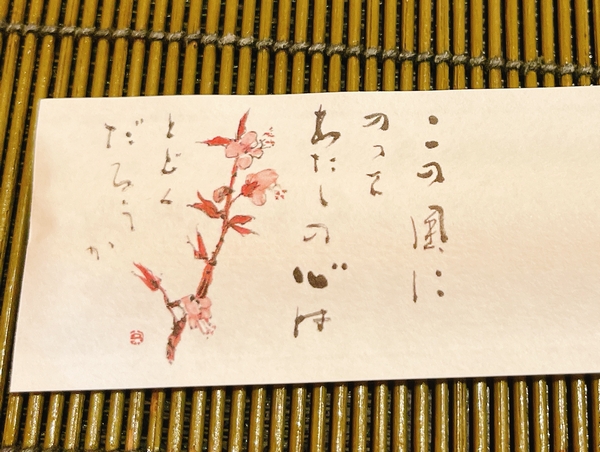 この風に
のって
わたしの心は
とどく
だろうか